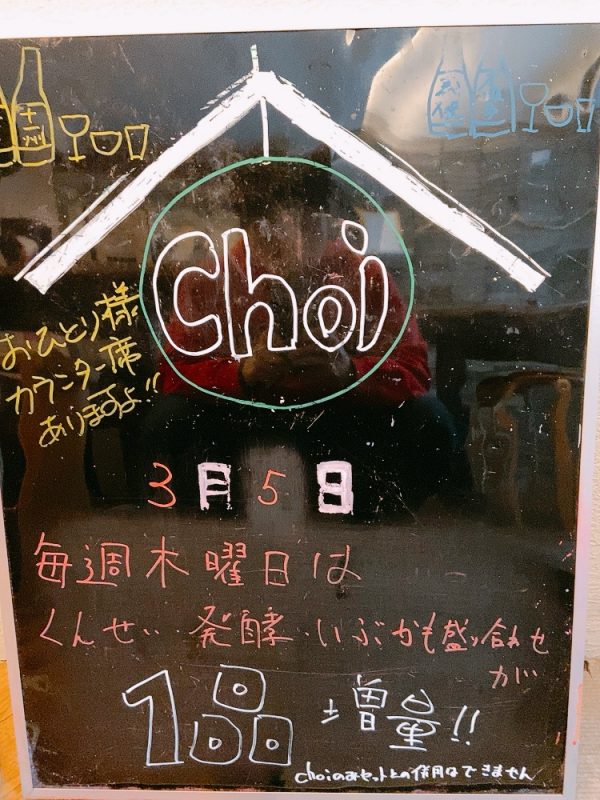 Choi
おひとり様
カウンター席
ありますよ!!
3月5日
毎週木曜日は
くんせい・発酵・いぶかも盛り合わせ
が
1品増量!!
choiのみセットとの併用はできません